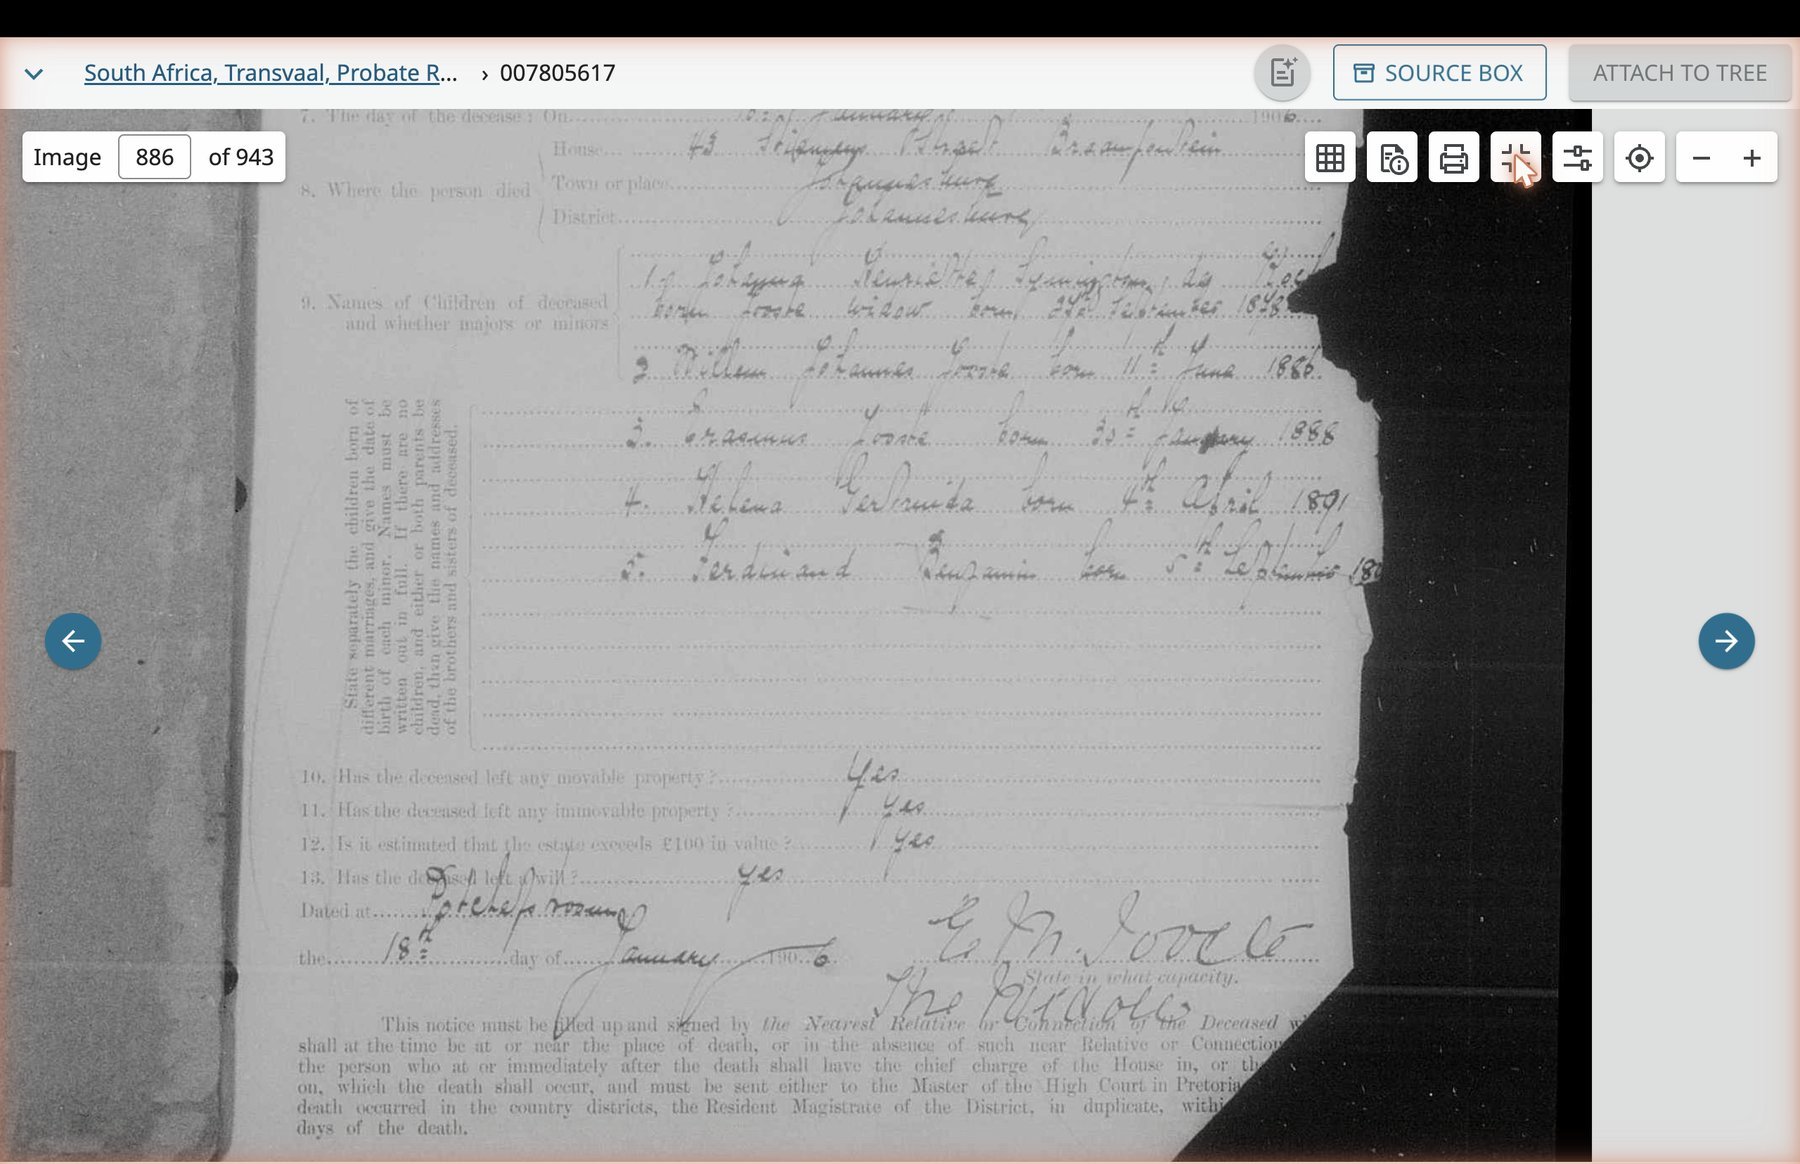 South Africa, Transvaal, Probate R... › 007805617
SOURCE BOX
ATTACH TO TREE
Image 886 of 943
7. The day of the decease: On January 1906
8. Where the person died
House 43 Street Braamfontein
Town or place Johannesburg
District Johannesburg
9. Names of Children of deceased and whether majors or minors
1. Johanna Henrietta Symington, de
born Jooste widow born September 1878
2 Willem Johannes Jooste born 11th June 1886
3. Erasmus Jooste born 30th January 1888
4. Helena Gertruida born 4th April 1891
5. Ferdinand Benjamin born 5th September 18
State separately the children born of
different marriages, and give the date of
birth of each minor. Names must be
written out in full. If there are no
children, and either or both parents be
dead, than give the names and addresses
of the brothers and sisters of deceased.
10. Has the deceased left any movable property? Yes
11. Has the deceased left any immovable property? yes
12. Is it estimated that the estate exceeds £100 in value? yes
13. Has the deceased left a will? yes
Dated at Potchefstroom
the 18th day of January 1906 E. M. Jooste
State in what capacity.
The Widow
This notice must be filled up and signed by the Nearest Relative or Connection of the Deceased w
shall at the time be at or near the place of death, or in the absence of such near Relative or Connection
the person who at or immediately after the death shall have the chief charge of the House in, or th
on, which the death shall occur, and must be sent either to the Master of the High Court in Pretoria
death occurred in the country districts, the Resident Magistrate of the District, in duplicate, withi
days of the death.